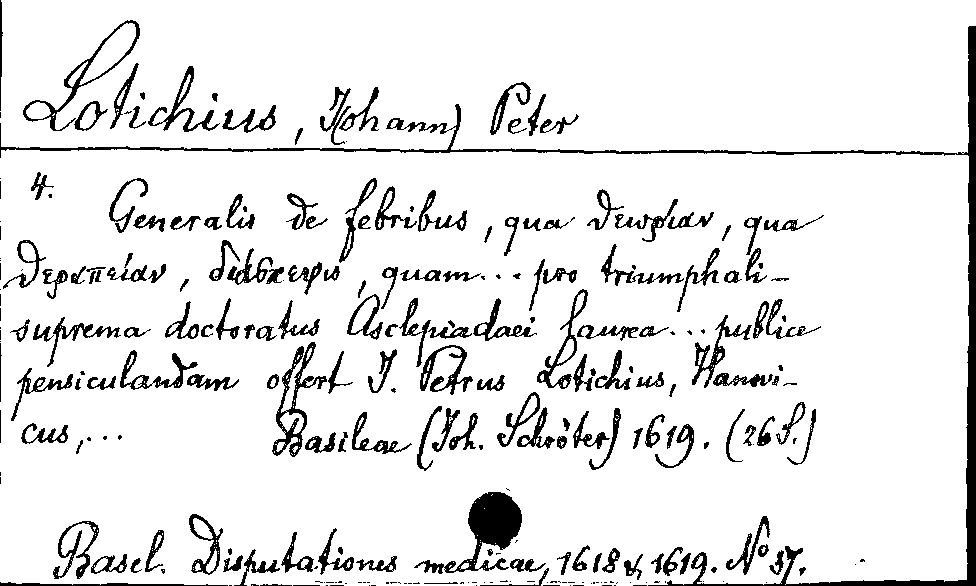 Lotichius, J(ohann) Peter
4.
Generalis de febribus, qua ϑεωρίαν, qua
ϑεραπείαν, διάσκεψις, quam... pro triumphali-
suprema doctoratus Asclepiadaei laurea... publice
pensiculandam offert J. Petrus Lotichius, Hanovi-
cus,... Basileae (Joh. Schröter) 1619. (26 S.)
Basel. Disputationes medicae, 1618 & 1619. No 37.